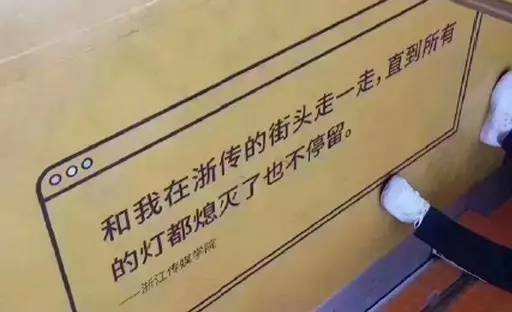 和我在浙传的街头走一走,直到所有
的灯都熄灭了也不停留。
——浙江传媒学院